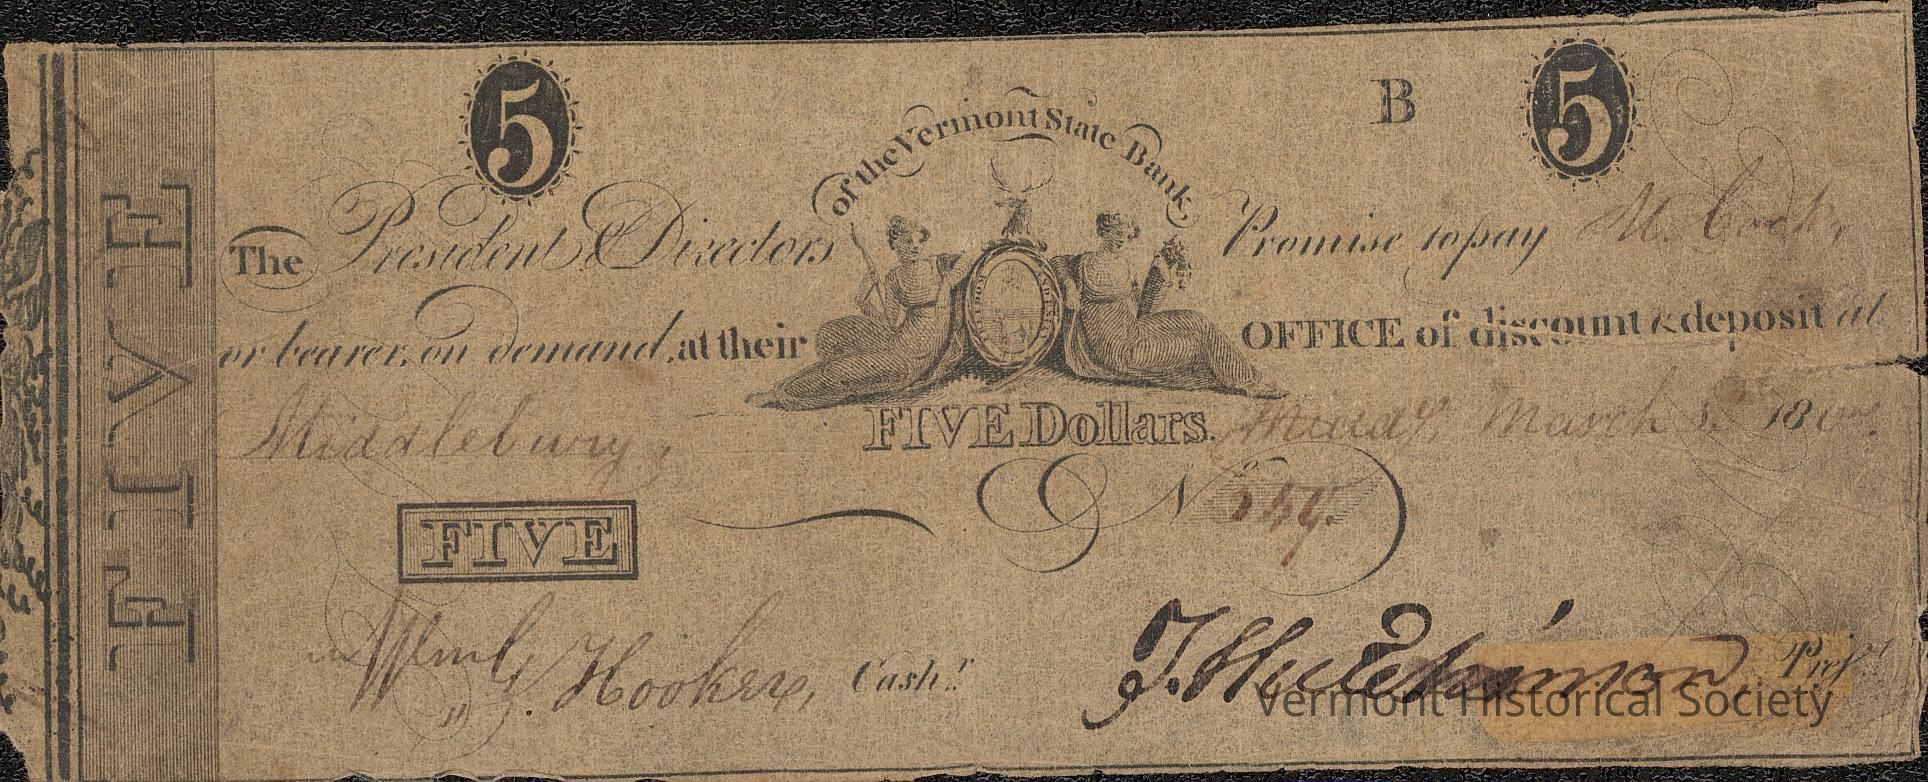 FIVE
5
B
5
of the Vermont State Bank
The President & Directors Promise to pay M. Cook,
or bearer, on demand, at their OFFICE of discount & deposit at
Middlebury, FIVE Dollars. March 180
No
FIVE
Wm G. Hooker, Cashr. T. Hutchinson, Prest
Vermont Historical Society